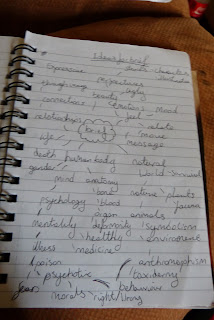 Ideas for brief
Expressive
through image beauty ugly
connections emotions mood
feel
relationships brief relate
life message
death human body natural
gender World Survival
mind anatomy
bone nature plants
psychology blood
organ animals
mentality deformity symbolism
healthy environment
illness medicine
poison anthropomorphism
psychotic taxidermy
fears behaviour
morals right/wrong